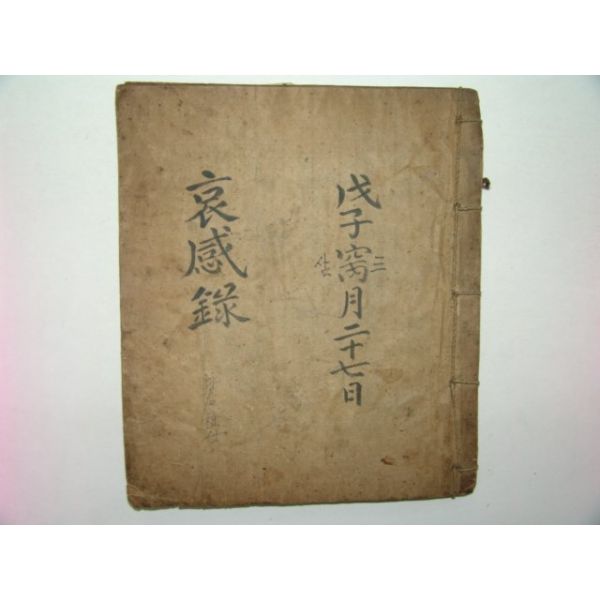 戊子寎月二十七日
三
삼
哀感錄